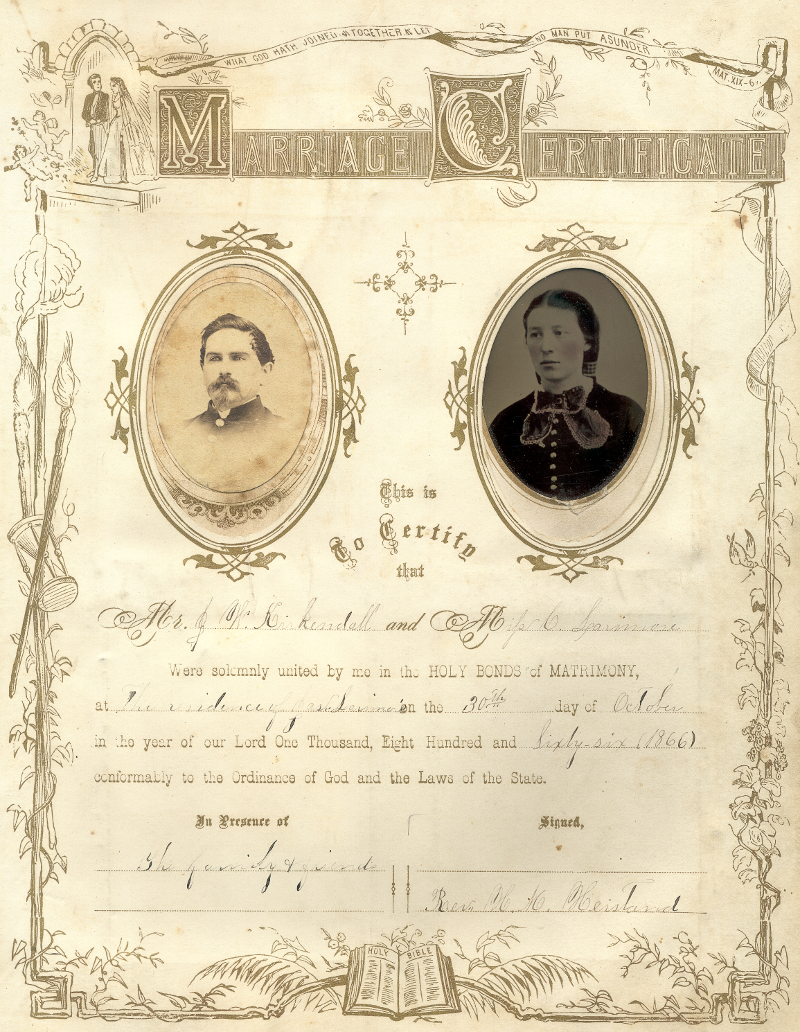 WHAT GOD HATH JOINED TOGETHER LET NO MAN PUT ASUNDER
MAT. XIX-6
MARRIAGE CERTIFICATE
This is
To Certify
that
Mr. J Wm Kirkendall and Miss C. Larimore
Were solemnly united by me in the HOLY BONDS of MATRIMONY,
at The residence of on the 30th day of October
in the year of our Lord One Thousand, Eight Hundred and Sixty-six (1866)
conformably to the Ordinance of God and the Laws of the State.
In Presence of
Signed,
The family & friends
Rev. H. M. Heistand
HOLY BIBLE